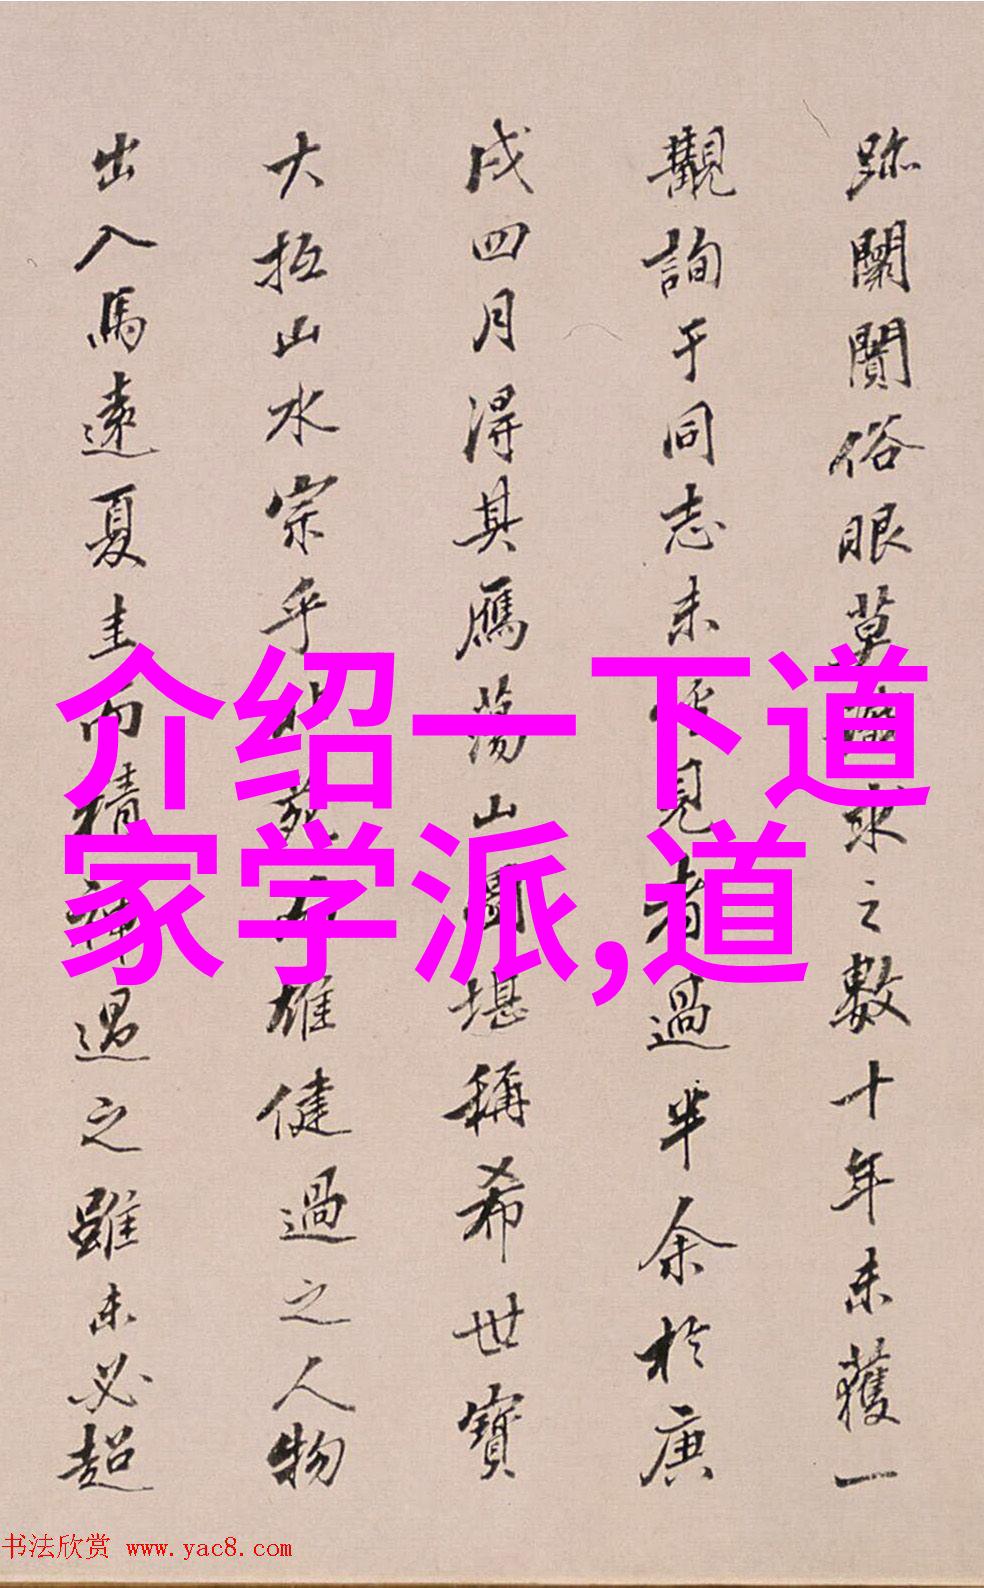 跡闤闠俗眼莫求之數十年未獲一
觀詢于同志未見者過半余於庚
戌四月得其鴈蕩山圖堪稱希世寶
大抵山水宗乎雄健過之人物
出入馬遠夏圭而精神過之雖未必超
介绍一下道
家学派,道
书法欣赏 www.yac8.com